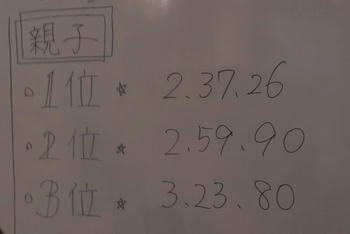 親子
○1位 ☆ 2.37.26
○2位 ☆ 2.59.90
○3位 ☆ 3.23.80